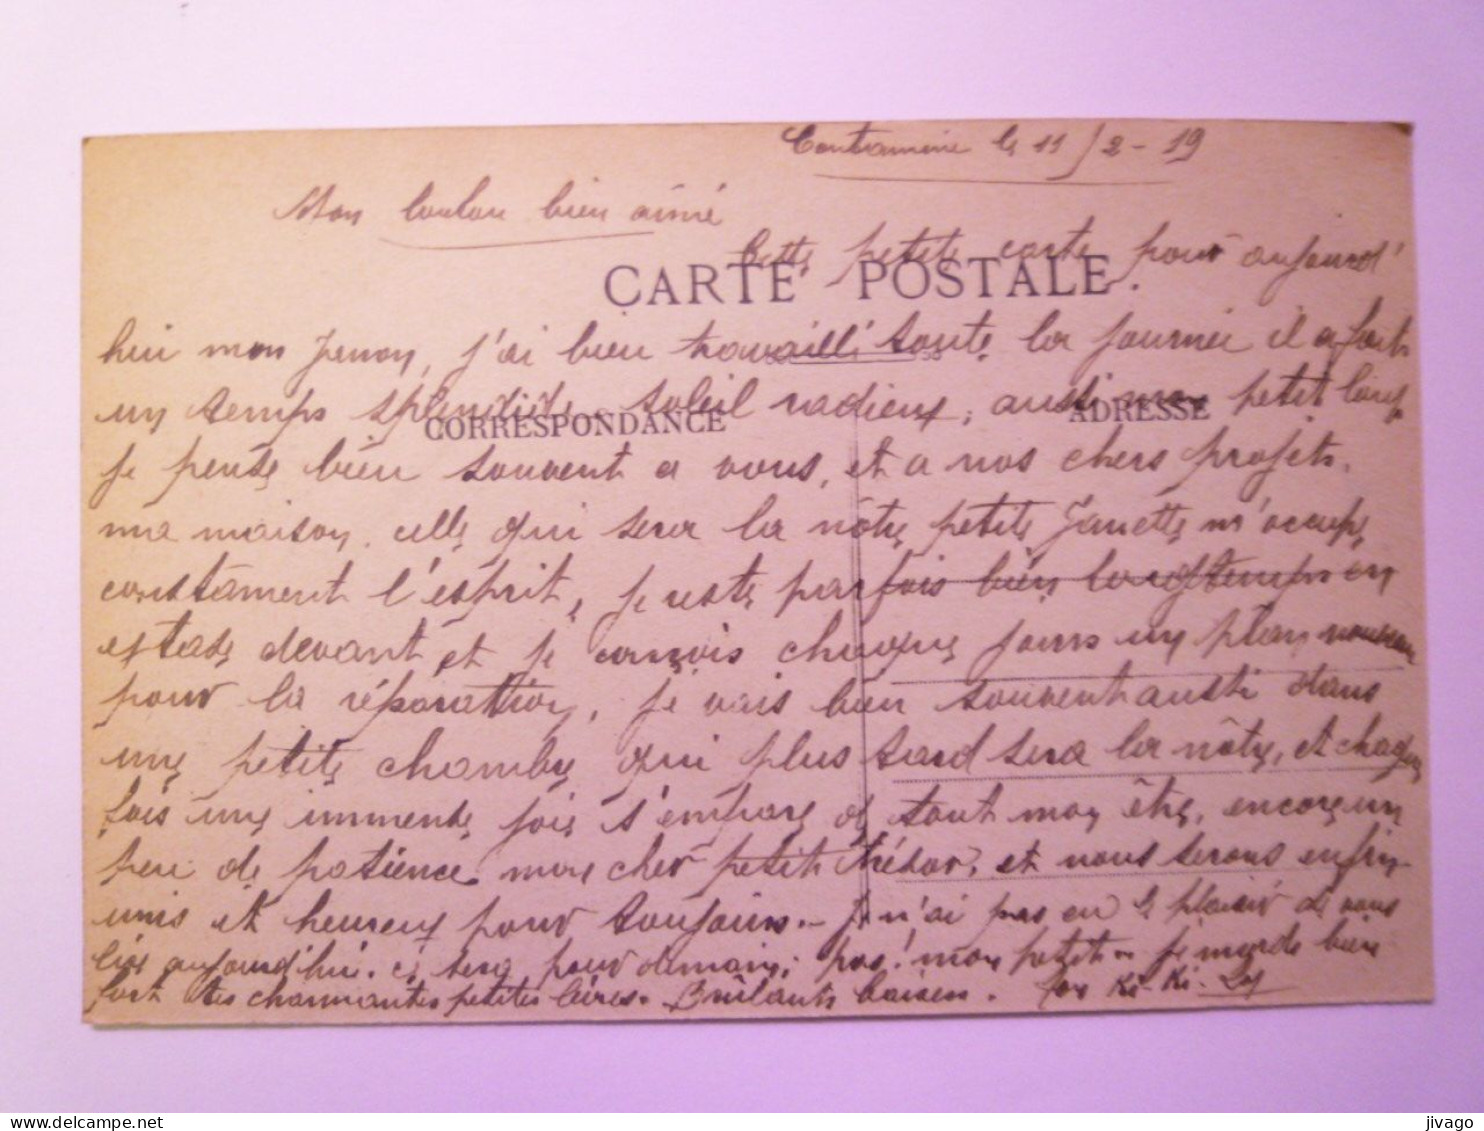 Contamine le 11/2-19
Mon loulou bien aimé
Cette petite carte pour aujourd'
CARTE POSTALE
hui mon , j'ai bien travaillé toute la journée il a fait
un temps splendide. soleil radieux, aussi mon petit loup
CORRESPONDANCE
ADRESSE
je pense bien souvent a vous, et a nos chers projets.
ma maison. celle qui sera la nôtre petite Janette m'occupe
constament l'esprit, je reste parfois bien longtemps en
extase devant et je conçois chaque jours un plan nouveau
pour la réparattion, je vais bien souvent aussi dans
une petite chambre qui plus tard sera la nôtre, et chaque
fois une immense joie s'empare de tout mon être, encore un
peu de patience mon cher petit trésor, et nous serons enfin
unis et heureux pour toujours.- Je n'ai pas eu le plaisir de vous
lire aujourd'hui. ce sera pour demain; pas! mon petit - je morde bien
fort tes charmantes petites lèvres. Brûlants baisers. Ton Ki-Ki-
jivago